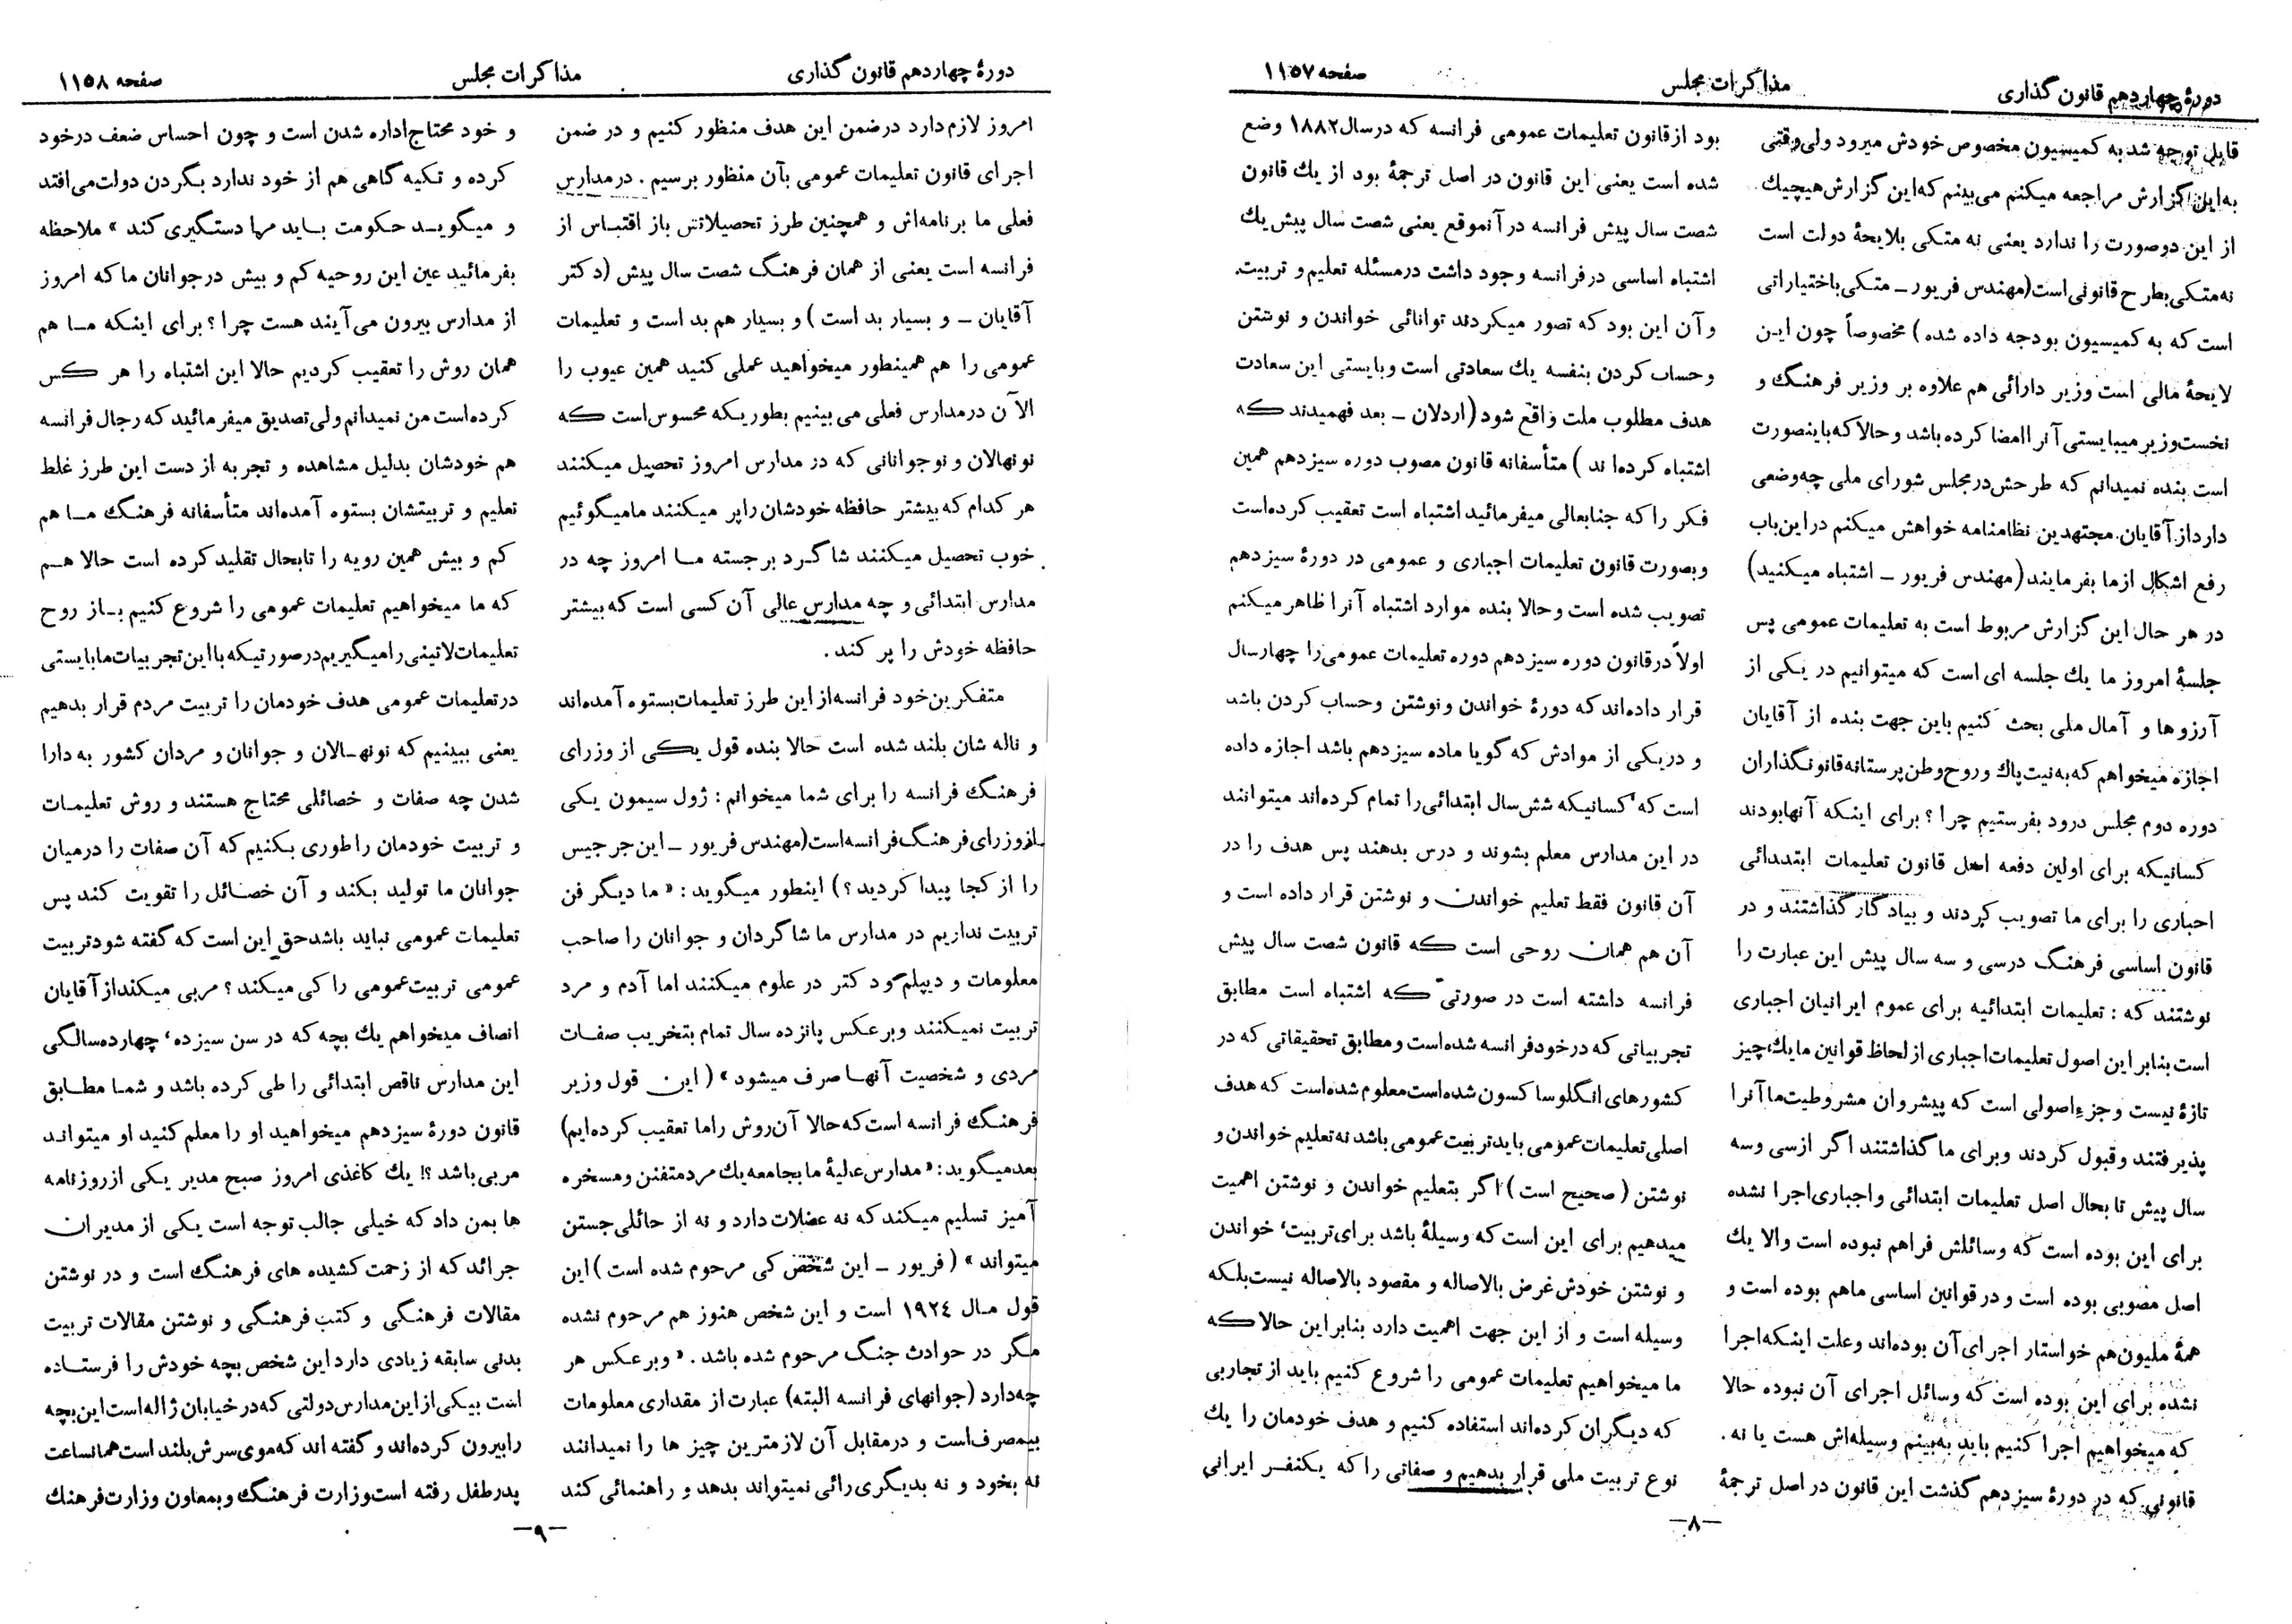 دورهٔ چهاردهم قانون گذاری
مذاکرات مجلس
صفحه ۱۱۵۷
قابل توجه شد به کمیسیون مخصوص خودش میرود ولی وقتی
به این گزارش مراجعه میکنم می‌بینم که این گزارش هیچیك
از این دو صورت را ندارد یعنی نه متکی بلایحهٔ دولت است
نه متکی بطرح قانونی است (مهندس فریور ـ متکی باختیاراتی
است که به کمیسیون بودجه داده شده) مخصوصاً چون این
لایحهٔ مالی است وزیر دارائی هم علاوه بر وزیر فرهنگ و
نخست‌وزیر میبایستی آنرا امضا کرده باشد و حالا که باینصورت
است بنده نمیدانم که طرحش در مجلس شورای ملی چه وضعی
دارد از آقایان مجتهدین نظامنامه خواهش میکنم در این باب
رفع اشکال از ما بفرمایند (مهندس فریور ـ اشتباه میکنید)
در هر حال این گزارش مربوط است به تعلیمات عمومی پس
جلسهٔ امروز ما یك جلسه ای است که میتوانیم در یکی از
آرزوها و آمال ملی بحث کنیم باین جهت بنده از آقایان
اجازه میخواهم که به نیت پاك و روح وطن پرستانه قانونگذاران
دوره دوم مجلس درود بفرستیم چرا ؟ برای اینکه آنها بودند
کسانیکه برای اولین دفعه اصل قانون تعلیمات ابتدائی
اجباری را برای ما تصویب کردند و بیادگار گذاشتند و در
قانون اساسی فرهنگ در سی و سه سال پیش این عبارت را
نوشتند که : تعلیمات ابتدائیه برای عموم ایرانیان اجباری
است بنابر این اصول تعلیمات اجباری از لحاظ قوانین ما یك چیز
تازهٔ نیست و جزء اصولی است که پیشروان مشروطیت ما آنرا
پذیرفتند و قبول کردند و برای ما گذاشتند اگر از سی و سه
سال پیش تا بحال اصل تعلیمات ابتدائی و اجباری اجرا نشده
برای این بوده است که وسائلش فراهم نبوده است والا یك
اصل مصوبی بوده است و در قوانین اساسی ما هم بوده است و
همهٔ ملیون هم خواستار اجرای آن بوده‌اند و علت اینکه اجرا
نشده برای این بوده است که وسائل اجرای آن نبوده حالا
که میخواهیم اجرا کنیم باید به‌بینم وسیله‌اش هست یا نه .
قانونی که در دورهٔ سیزدهم گذشت این قانون در اصل ترجمهٔ
بود از قانون تعلیمات عمومی فرانسه که در سال ۱۸۸۲ وضع
شده است یعنی این قانون در اصل ترجمهٔ بود از یك قانون
شصت سال پیش فرانسه در آنموقع یعنی شصت سال پیش یك
اشتباه اساسی در فرانسه وجود داشت در مسئله تعلیم و تربیت
و آن این بود که تصور میکردند توانائی خواندن و نوشتن
و حساب کردن بنفسه یك سعادتی است و بایستی این سعادت
هدف مطلوب ملت واقع شود (اردلان ـ بعد فهمیدند که
اشتباه کرده‌اند) متأسفانه قانون مصوب دوره سیزدهم همین
فکر را که جنابعالی میفرمائید اشتباه است تعقیب کرده‌است
و بصورت قانون تعلیمات اجباری و عمومی در دورهٔ سیزدهم
تصویب شده است و حالا بنده موارد اشتباه آنرا ظاهر میکنم
اولاً در قانون دوره سیزدهم دوره تعلیمات عمومی را چهار سال
قرار داده‌اند که دورهٔ خواندن و نوشتن و حساب کردن باشد
و در یکی از موادش که گویا ماده سیزدهم باشد اجازه داده
است که کسانیکه شش سال ابتدائی را تمام کرده‌اند میتوانند
در این مدارس معلم بشوند و درس بدهند پس هدف را در
آن قانون فقط تعلیم خواندن و نوشتن قرار داده است و
آن هم همان روحی است که قانون شصت سال پیش
فرانسه داشته است در صورتی که اشتباه است مطابق
تجربیاتی که در خود فرانسه شده‌است و مطابق تحقیقاتی که در
کشورهای انگلوساکسون شده‌است معلوم شده‌است که هدف
اصلی تعلیمات عمومی باید تربیت عمومی باشد نه تعلیم خواندن و
نوشتن (صحیح است) اگر بتعلیم خواندن و نوشتن اهمیت
میدهیم برای این است که وسیلهٔ باشد برای تربیت، خواندن
و نوشتن خودش غرض بالاصاله و مقصود بالاصاله نیست بلکه
وسیله است و از این جهت اهمیت دارد بنابراین حالا که
ما میخواهیم تعلیمات عمومی را شروع کنیم باید از تجاربی
که دیگران کرده‌اند استفاده کنیم و هدف خودمان را یك
نوع تربیت ملی قرار بدهیم و صفاتی را که یکنفر ایرانی
ـ۸ـ
دورهٔ چهاردهم قانون گذاری
مذاکرات مجلس
صفحه ۱۱۵۸
امروز لازم دارد در ضمن این هدف منظور کنیم و در ضمن
اجرای قانون تعلیمات عمومی بآن منظور برسیم . در مدارس
فعلی ما برنامه‌اش و همچنین طرز تحصیلاتش باز اقتباس از
فرانسه است یعنی از همان فرهنگ شصت سال پیش (دکتر
آقایان ـ و بسیار بد است) و بسیار هم بد است و تعلیمات
عمومی را هم همینطور میخواهید عملی کنید همین عیوب را
الآن در مدارس فعلی می بینیم بطوریکه محسوس است که
نونهالان و نوجوانانی که در مدارس امروز تحصیل میکنند
هر کدام که بیشتر حافظه خودشان را پر میکنند ما میگوئیم
خوب تحصیل میکنند شاگرد برجسته ما امروز چه در
مدارس ابتدائی و چه مدارس عالی آن کسی است که بیشتر
حافظه خودش را پر کند .
متفکرین خود فرانسه از این طرز تعلیمات بستوه آمده‌اند
و ناله شان بلند شده است حالا بنده قول یکی از وزرای
فرهنگ فرانسه را برای شما میخوانم : ژول سیمون یکی
از وزرای فرهنگ فرانسه است (مهندس فریور ـ این جرجیس
را از کجا پیدا کردید ؟) اینطور میگوید : « ما دیگر فن
تربیت نداریم در مدارس ما شاگردان و جوانان را صاحب
معلومات و دیپلم و دکتر در علوم میکنند اما آدم و مرد
تربیت نمیکنند و برعکس پانزده سال تمام بتخریب صفات
مردی و شخصیت آنها صرف میشود » (این قول وزیر
فرهنگ فرانسه است که حالا آن روش را ما تعقیب کرده‌ایم)
بعد میگوید : « مدارس عالیهٔ ما بجامعه یك مرد متفنن و مسخره
آمیز تسلیم میکند که نه عضلات دارد و نه از حائلی جستن
میتواند » (فریور ـ این شخص کی مرحوم شده است) این
قول مال ۱۹۲۴ است و این شخص هنوز هم مرحوم نشده
مگر در حوادث جنگ مرحوم شده باشد . « و برعکس هر
چه دارد (جوانهای فرانسه البته) عبارت از مقداری معلومات
بیمصرف است و در مقابل آن لازمترین چیز ها را نمیدانند
نه بخود و نه بدیگری رائی نمیتواند بدهد و راهنمائی کند
و خود محتاج اداره شدن است و چون احساس ضعف در خود
کرده و تکیه گاهی هم از خود ندارد بگردن دولت می افتد
و میگوید حکومت باید مرا دستگیری کند » ملاحظه
بفرمائید عین این روحیه کم و بیش در جوانان ما که امروز
از مدارس بیرون می آیند هست چرا ؟ برای اینکه ما هم
همان روش را تعقیب کردیم حالا این اشتباه را هر کس
کرده است من نمیدانم ولی تصدیق میفرمائید که رجال فرانسه
هم خودشان بدلیل مشاهده و تجربه از دست این طرز غلط
تعلیم و تربیتشان بستوه آمده‌اند متأسفانه فرهنگ ما هم
کم و بیش همین رویه را تابحال تقلید کرده است حالا هم
که ما میخواهیم تعلیمات عمومی را شروع کنیم باز روح
تعلیمات لاتینی را میگیریم در صورتیکه با این تجربیات ما بایستی
در تعلیمات عمومی هدف خودمان را تربیت مردم قرار بدهیم
یعنی ببینیم که نونهالان و جوانان و مردان کشور به دارا
شدن چه صفات و خصائلی محتاج هستند و روش تعلیمات
و تربیت خودمان را طوری بکنیم که آن صفات را در میان
جوانان ما تولید بکند و آن خصائل را تقویت کند پس
تعلیمات عمومی نباید باشد حق این است که گفته شود تربیت
عمومی تربیت عمومی را کی میکند ؟ مربی میکند از آقایان
انصاف میخواهم یك بچه که در سن سیزده، چهارده سالگی
این مدارس ناقص ابتدائی را طی کرده باشد و شما مطابق
قانون دورهٔ سیزدهم میخواهید او را معلم کنید او میتواند
مربی باشد ؟! یك کاغذی امروز صبح مدیر یکی از روزنامه
ها بمن داد که خیلی جالب توجه است یکی از مدیران
جرائد که از زحمت کشیده های فرهنگ است و در نوشتن
مقالات فرهنگی و کتب فرهنگی و نوشتن مقالات تربیت
بدنی سابقه زیادی دارد این شخص بچه خودش را فرستاده
است بیکی از این مدارس دولتی که در خیابان ژاله است این بچه
را بیرون کرده‌اند و گفته اند که موی سرش بلند است همانساعت
پدر طفل رفته است وزارت فرهنگ و بمعاون وزارت فرهنگ
ـ۹ـ